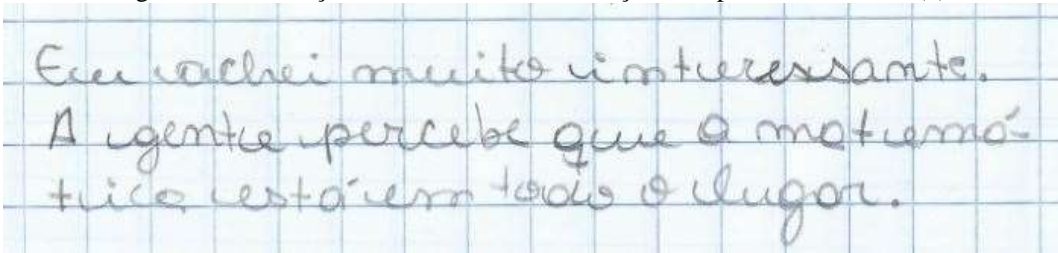 Eu achei muito interessante.
A gente percebe que a matemá-
tica está em todo o lugar.